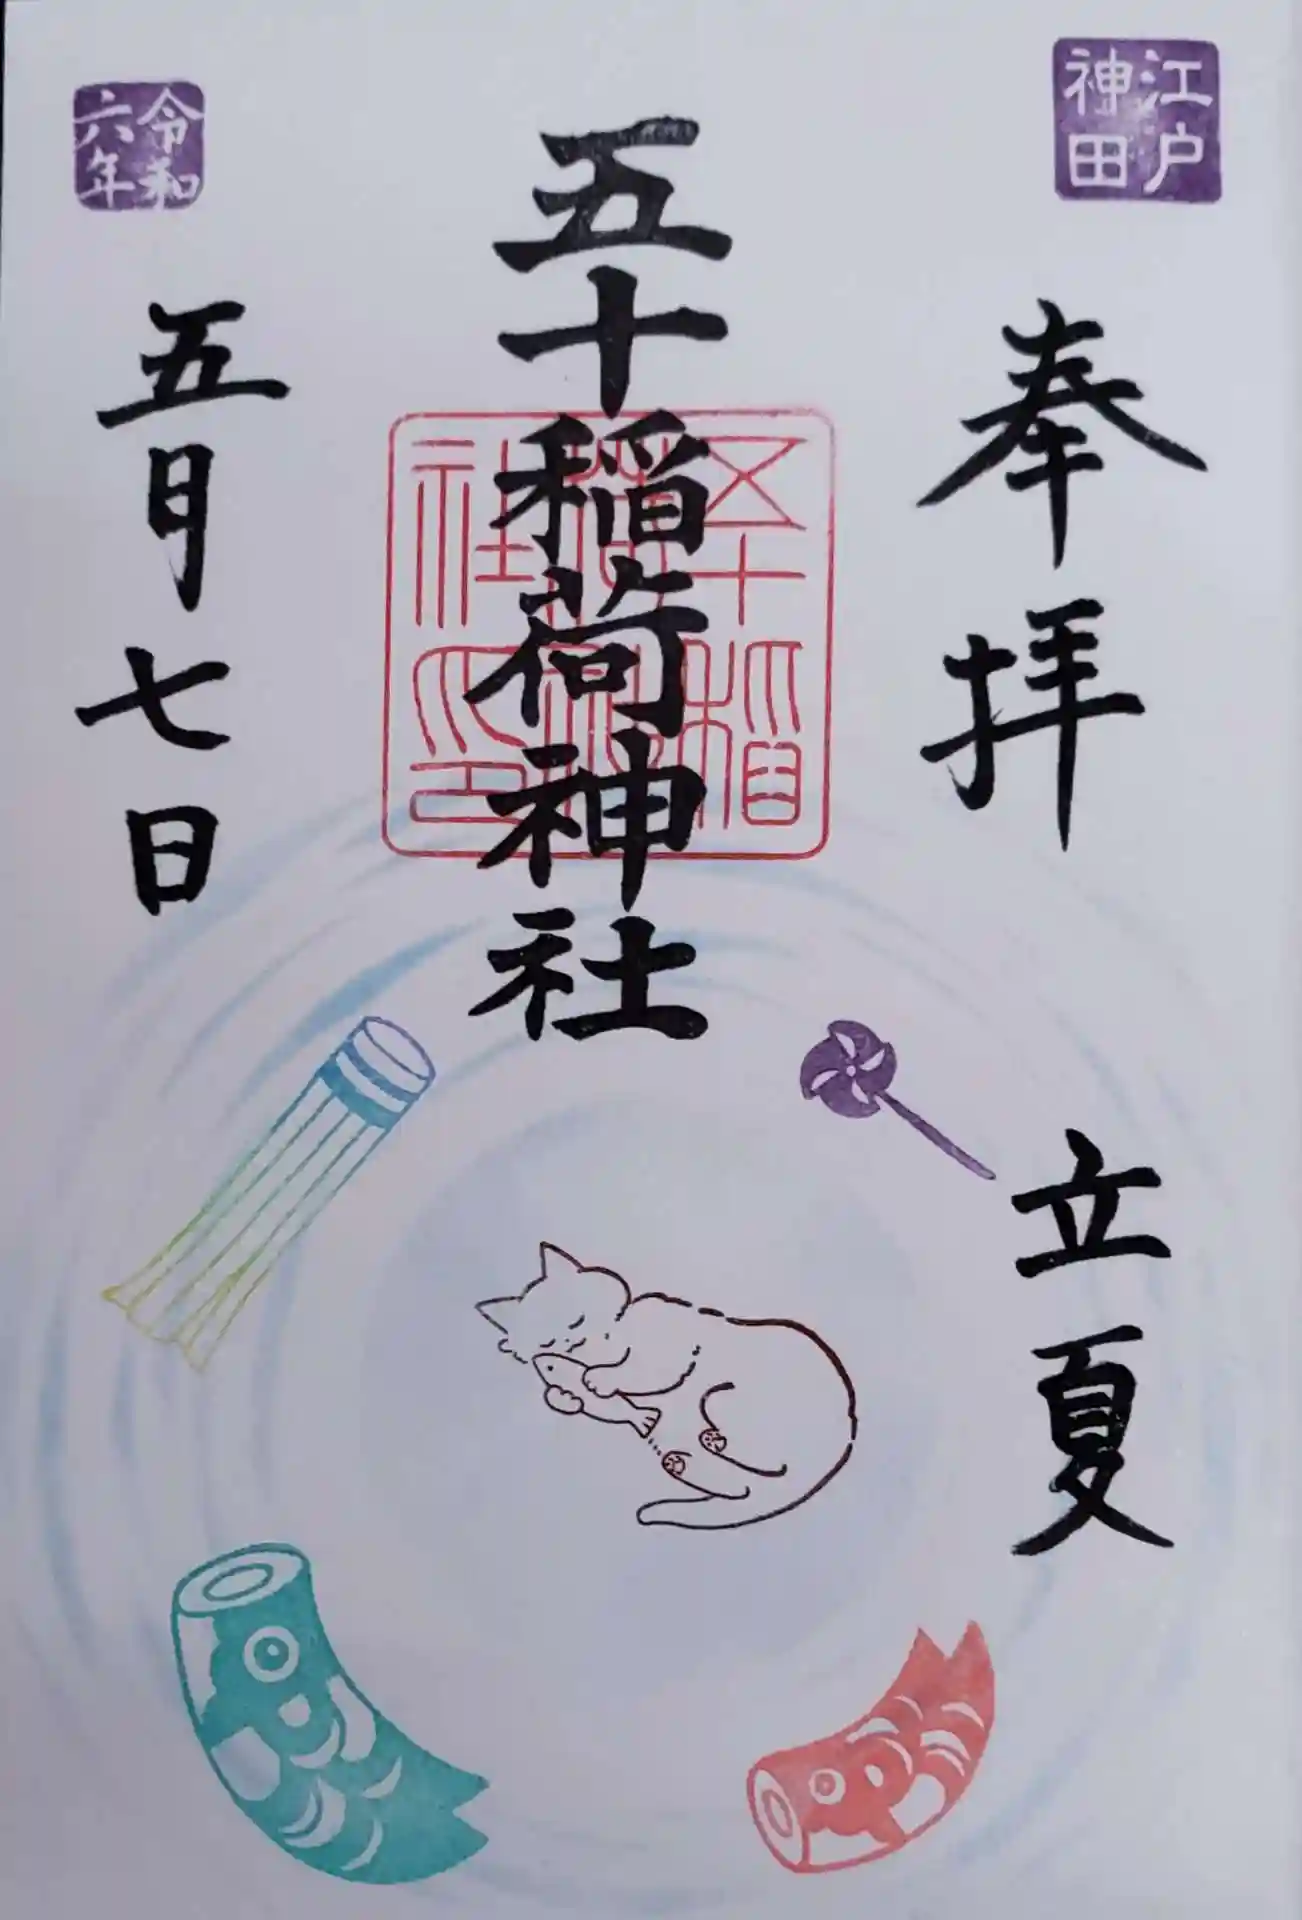 江戸
神田
奉拝
立夏
五十稲荷神社
五十稲
荷神
社之印
令和
六年
五月七日